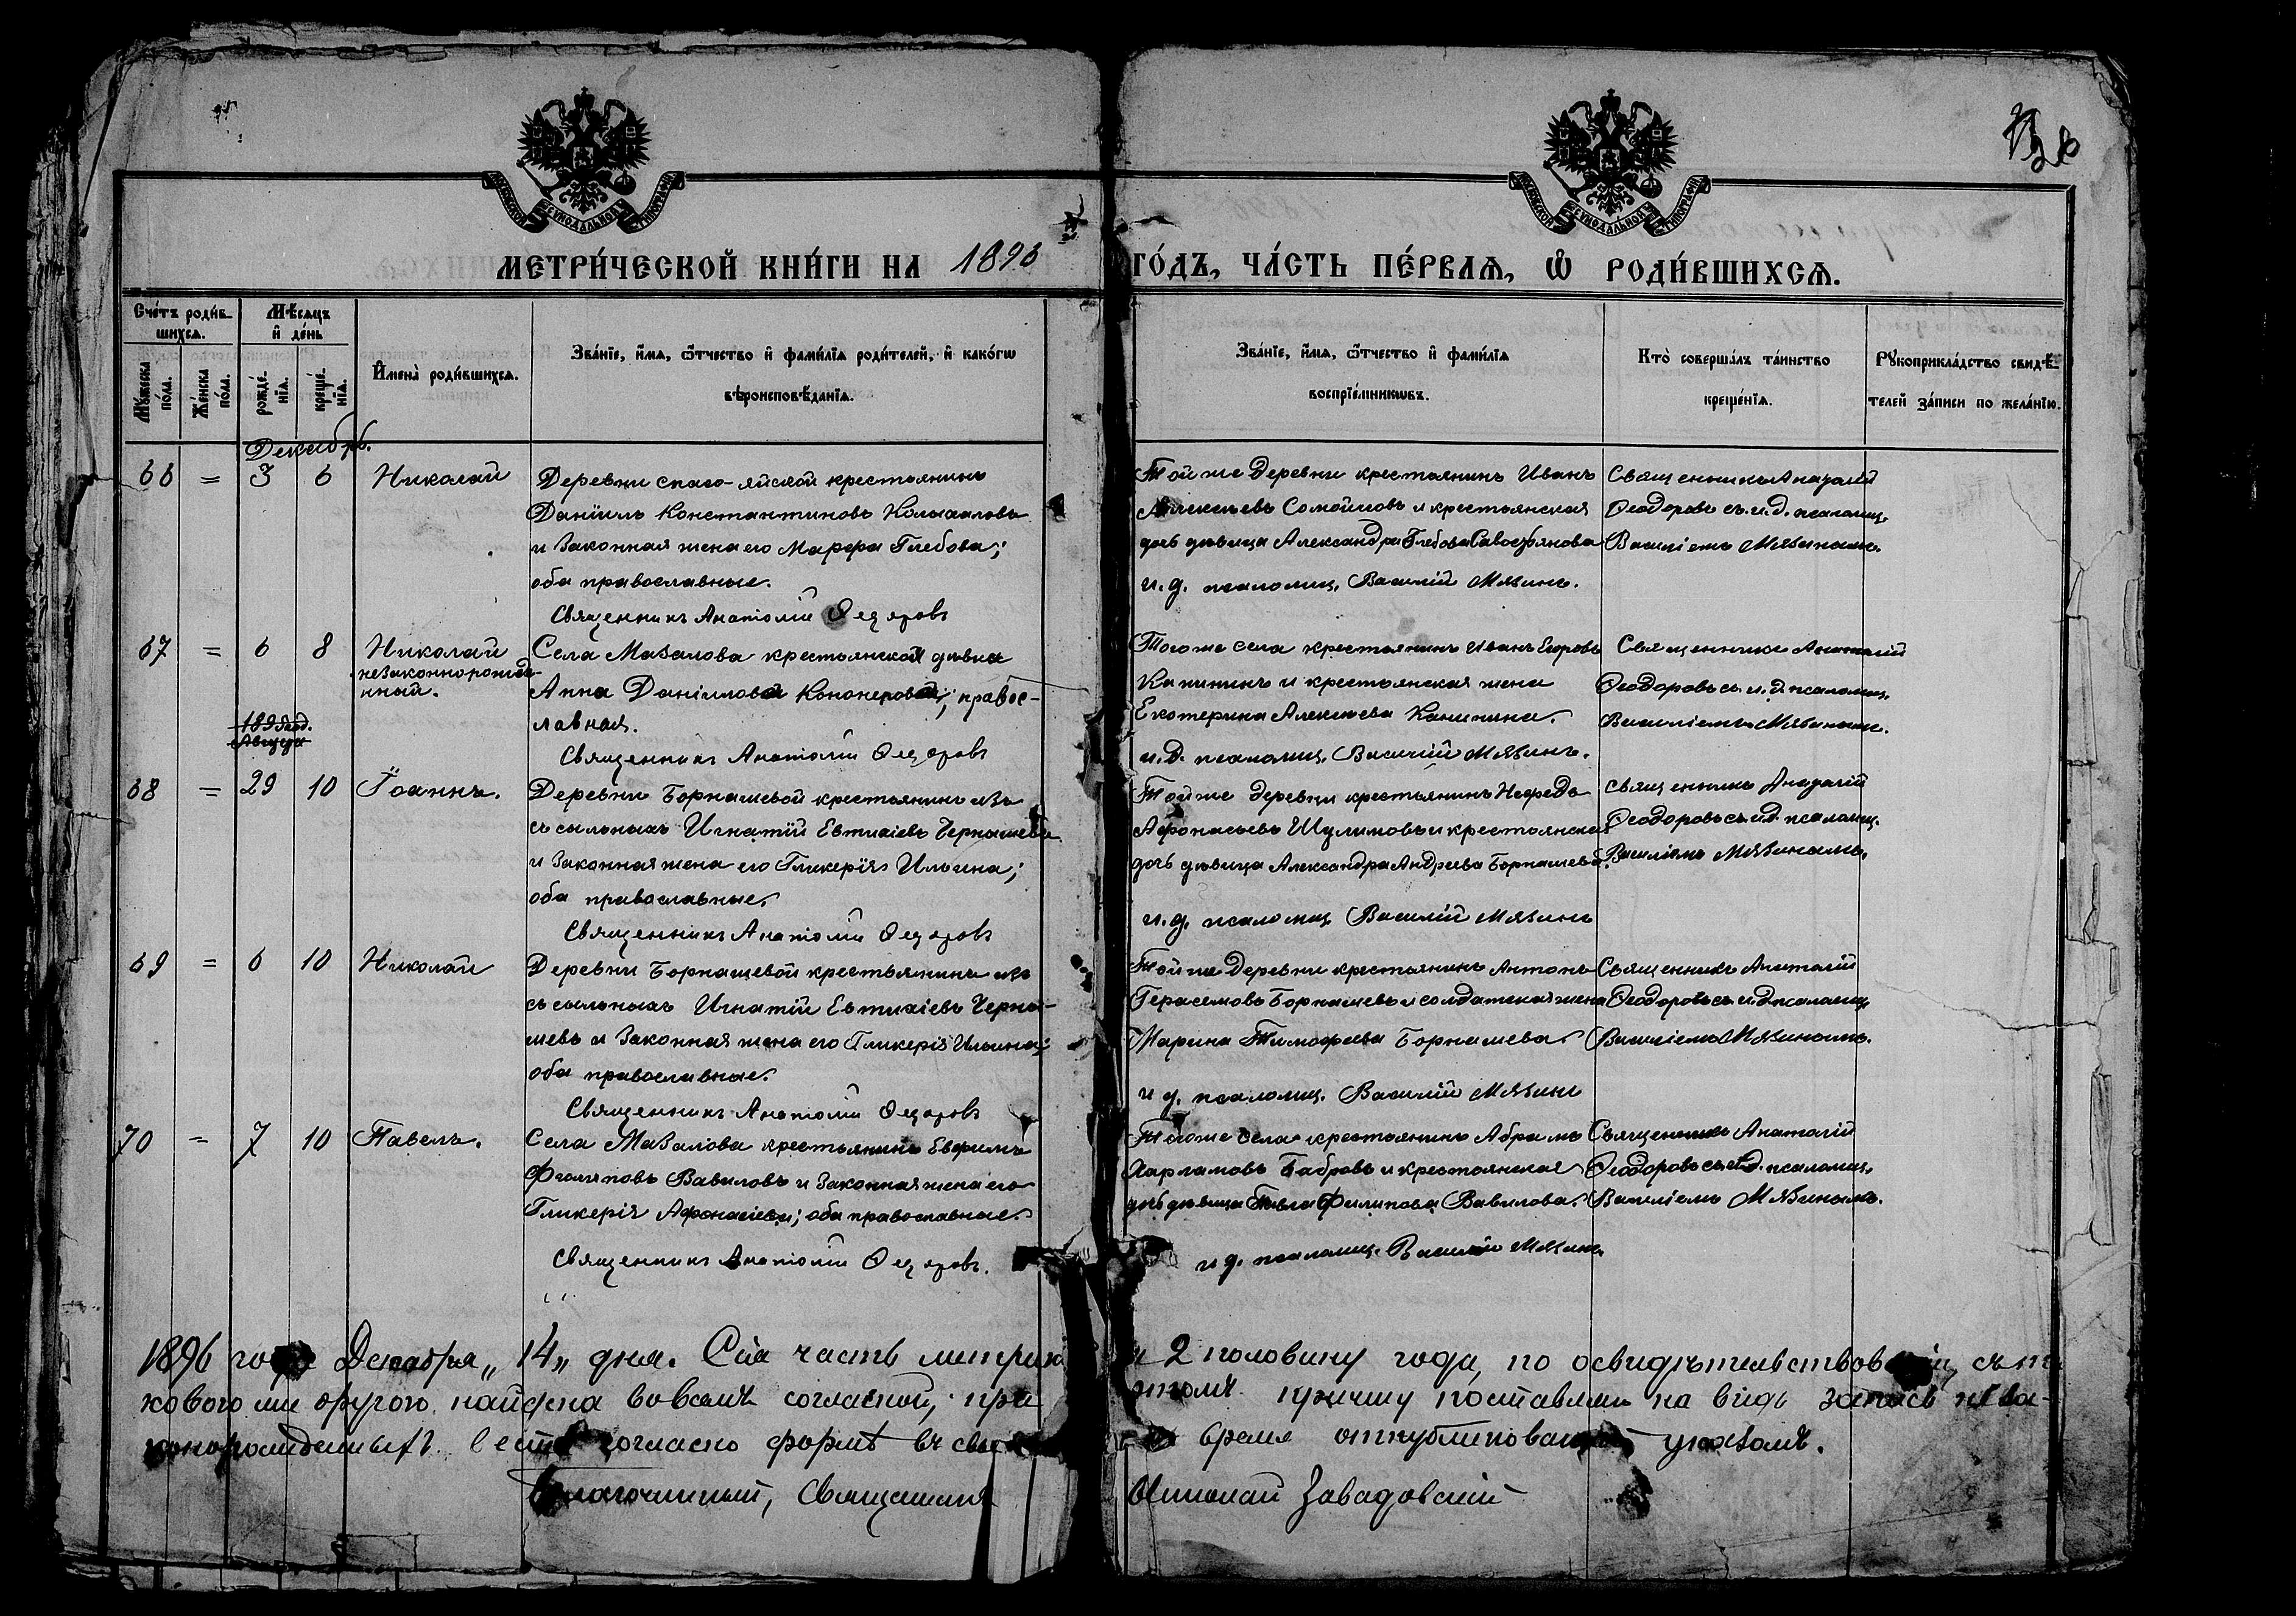 МОСКОВСКОЙ СѴНОДАЛЬНОЙ ТИПОГРАФІИ
МОСКОВСКОЙ СѴНОДАЛЬНОЙ ТИПОГРАФІИ
МЕТРИ́ЧЕСКОЙ КНИ́ГИ НА 1896
ГО́ДЪ, ЧА́СТЬ ПЕ́РВАѦ, Ѽ РОДИ́ВШИХСѦ.
Сче́тъ роди́в-
шихсѧ.
Мѣ́сѧцъ
и҆ де́нь
Му́жеска по́ла.
Же́нска по́ла.
рожде́-нїѧ.
креще́-нїѧ.
И҆мена̀ роди́вшихсѧ.
Зва́нїе, и҆́мѧ, ѻ҆́тчество и҆ фами́лїѧ роди́телей, и҆ како́гѡ
вѣроисповѣ́данїѧ.
Зва́нїе, и҆́мѧ, ѻ҆́тчество и҆ фами́лїѧ
воспрїе́мникѡвъ.
Кто̀ соверша́лъ та́инство
креще́нїѧ.
Рꙋкоприкла́дство свидѣ́-
телей за́писи по жела́нїю.
Декабрь.
66 = 3 6 Николай
Деревни Спасо-яйской крестьянинъ
Данiилъ Константиновъ
и законная жена его Марѳа Глебова;
оба православные.
Священникъ Анатолій Ѳедоровъ
Той же деревни крестьянинъ Иванъ
Алексѣевъ Самойловъ и крестьянская
дочь дѣвица Александра Глебова Савостьянова
и. д. псаломщ. Василій Мязинъ.
Священникъ Анатолій
Ѳеодоровъ съ и. д. псаломщ.
Василіемъ Мязинымъ.
67 = 6 8 Николай
незаконнорожде-
нный.
Села Мазалова крестьянской дѣвки
Анна Данiиловой; правос-
лавная.
Священникъ Анатолій Ѳедоровъ
Того же села крестьянинъ Иванъ Егоровъ
Канинъ и крестьянская жена
Екатерина Алексѣева Канинина.
и. д. псаломщ. Василій Мязинъ.
Священникъ Анатолій
Ѳеодоровъ съ и. д. псаломщ.
Василіемъ Мязинымъ.
Августа
68 = 29 10 Іоаннъ.
Деревни Борнашевой крестьянинъ изъ
ссыльныхъ Игнатій Евтихіевъ Чернышевъ
и законная жена его Гликерія Ильина;
оба православные.
Священникъ Анатолій Ѳедоровъ
Той же деревни крестьянинъ
Афонасьевъ Шулимовъ и крестьянская
дочь дѣвица Александра Андреева Борнашева.
и. д. псаломщ. Василій Мязинъ
Священникъ Анатолій
Ѳеодоровъ съ и. д. псаломщ.
Василіемъ Мязинымъ.
69 = 6 10 Николай
Деревни Борнашевой крестьянинъ изъ
ссыльныхъ Игнатій Евтихіевъ Черны-
шевъ и законная жена его Гликерія Ильина;
оба православные.
Священникъ Анатолій Ѳедоровъ
Той же деревни крестьянинъ Антонъ
Герасемовъ Борнашевъ и солдатская жена
Марина Тимофеева Борнашева.
и д. псаломщ. Василій Мязинъ
Священникъ Анатолій
Ѳеодоровъ съ и. д. псаломщ.
Василіемъ Мязинымъ.
70 = 7 10 Павелъ.
Села Мазалова крестьянинъ Евфимъ
Филиповъ Вавиловъ и законная жена его
Гликерія Афонасіева; оба православные.
Священникъ Анатолій Ѳедоровъ.
Того же села крестьянинъ Абрамъ
Харламовъ Бабровъ и крестьянская
дочь дѣвица Филипова Вавилова.
и д. псаломщ. Василій Мязинъ
Священникъ Анатолій
Ѳеодоровъ съ и. д. псаломщ.
Василіемъ Мязинымъ.
1896 года Декабря „14„ дня. Сія часть метрики 2 половину года, по освидѣтельствованіи,
найдена во всемъ согласной; при причту поставлено на видъ запись неза-
согласно формѣ въ свое время отпубликованной указомъ.
Благочинный, Священникъ Николай Завадовскій